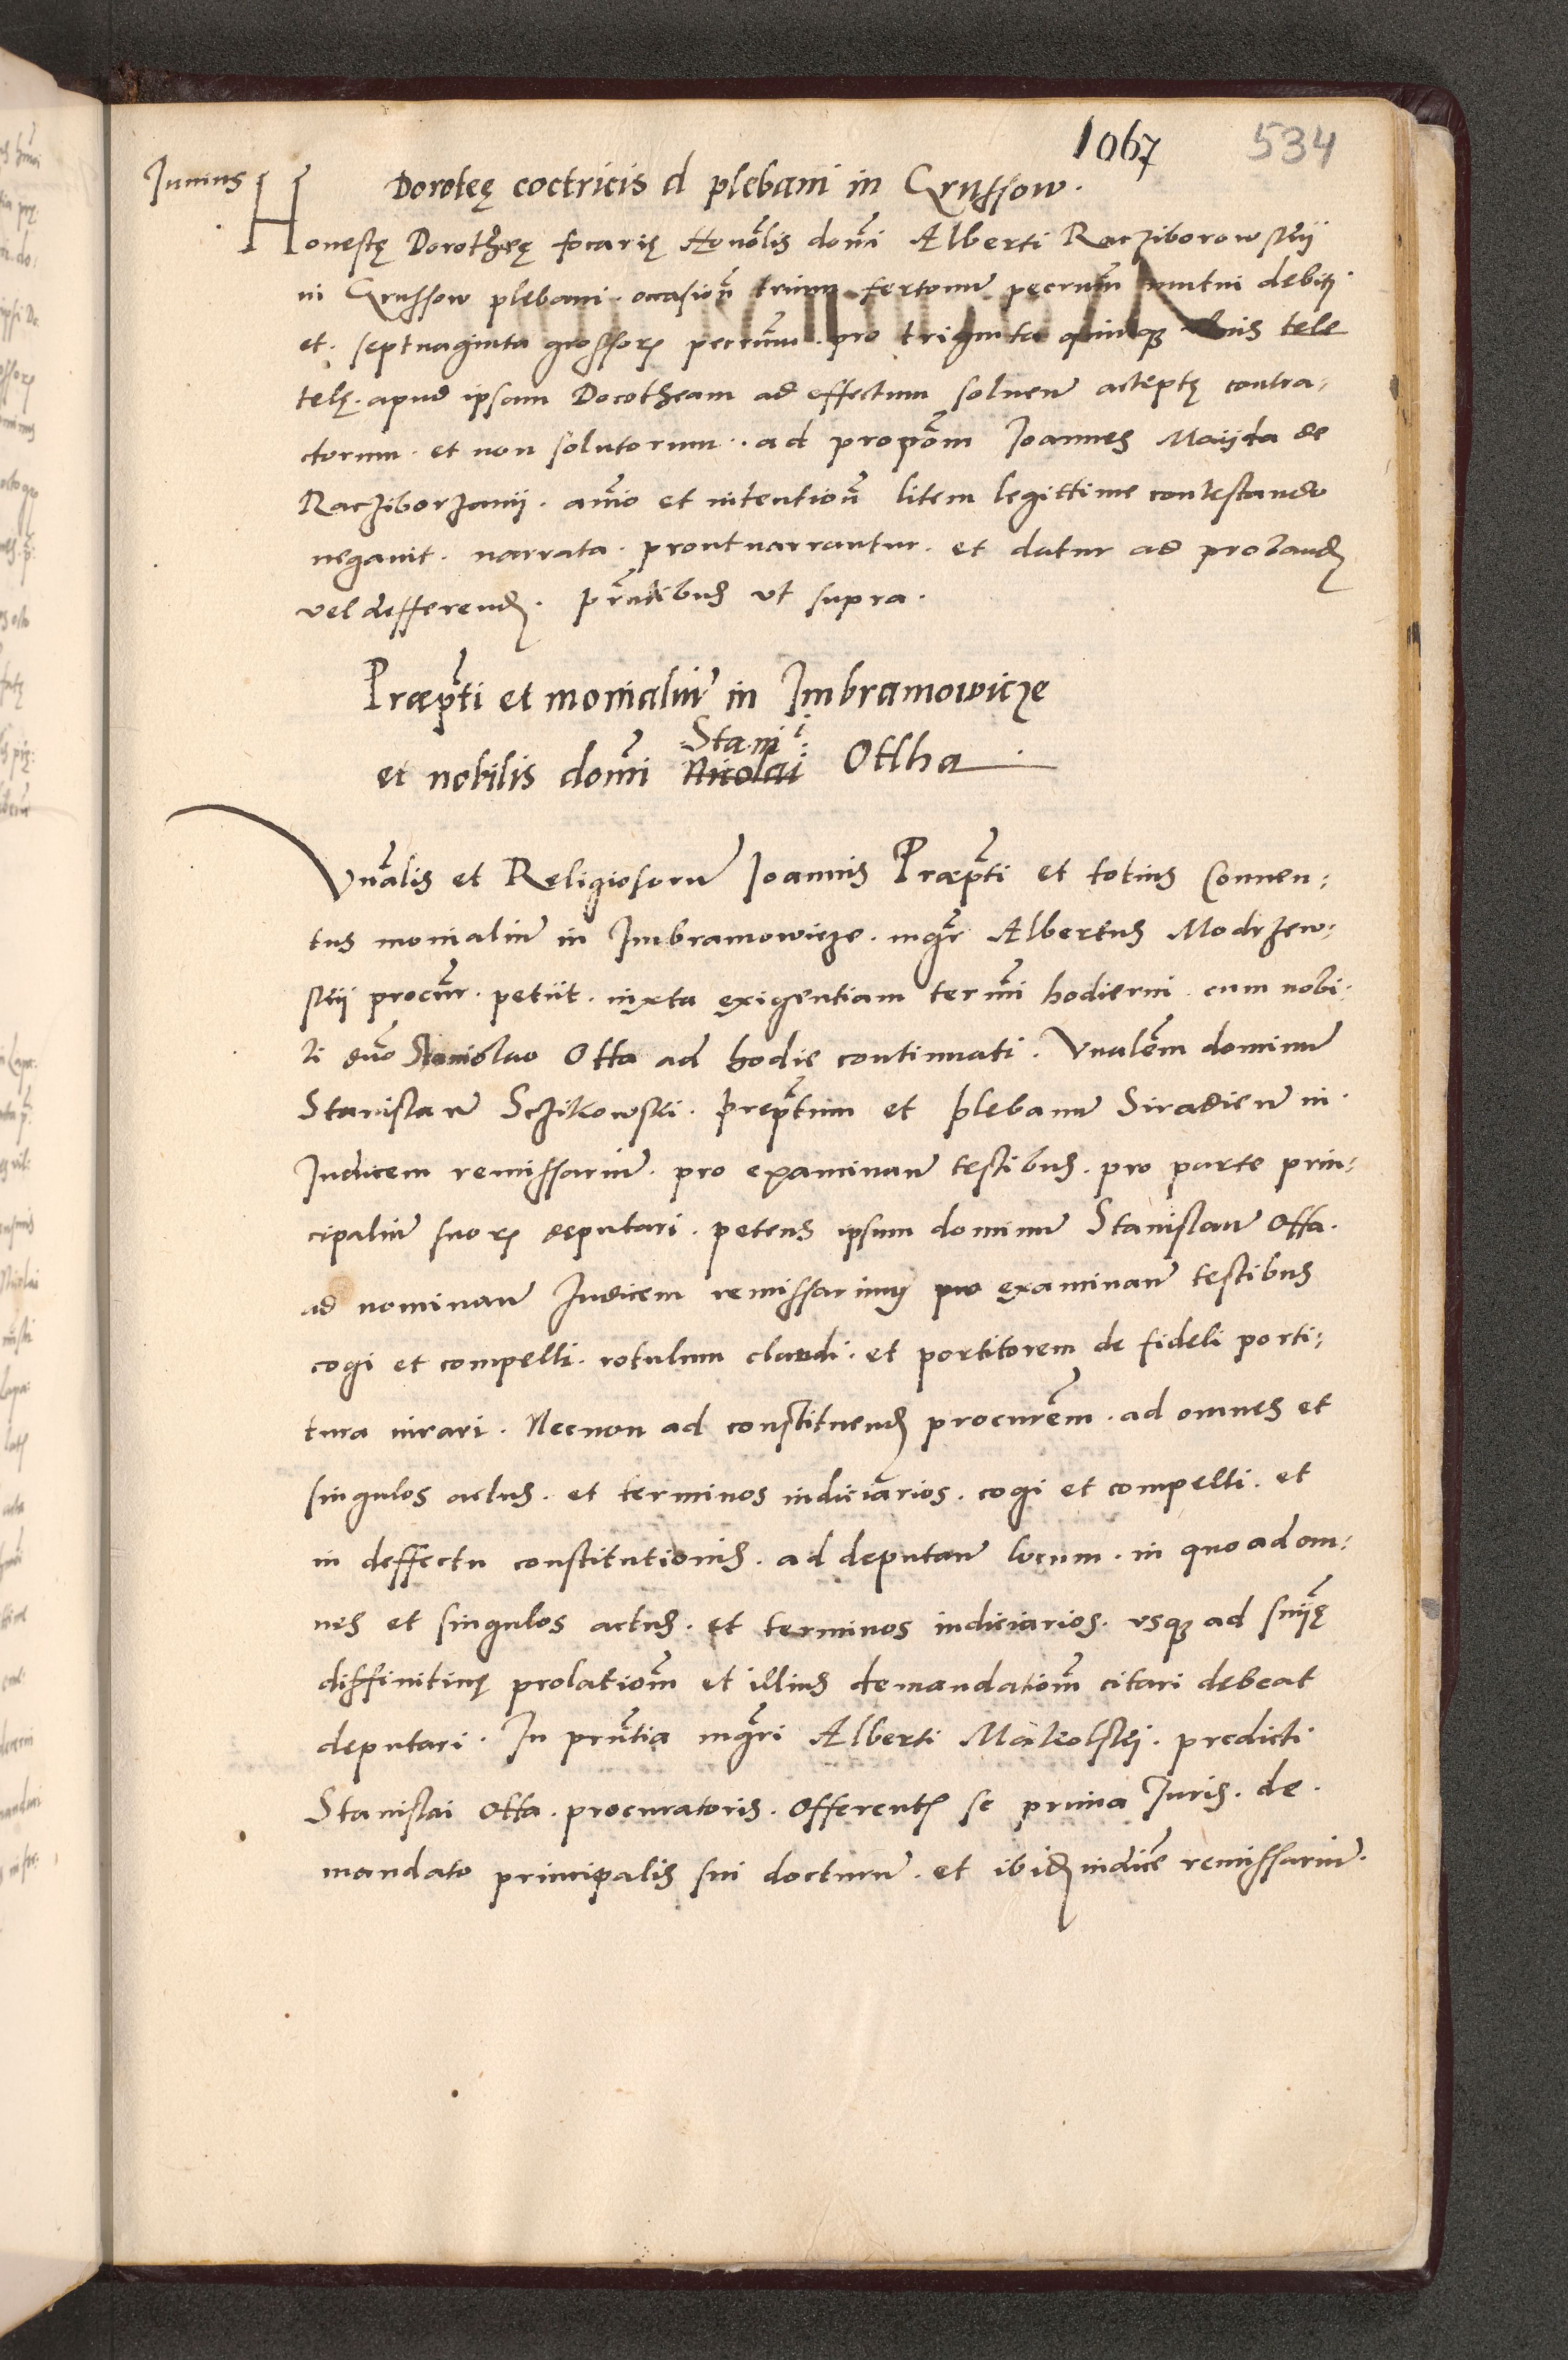 1067 534
Junius
Doroteę coctricis d plebani in Grussow.
Honestę Dorotheę focarię Honolis domi Alberti Racziborowskij
in Grussow plebani. occasion trium fertonum pecum mutui debiti
et. septuaginta grossor pecum. pro triginta quinq ulnis tele
telę. apud ipsam Dorotheam ad effectum soluen acceptę contra-
ctorum. et non solutorum. ad propom Joannes Maijda de
Racziborzanij. animo et intention litem legittime contestando
negauit. narrata. prout narrantur. et datur ad proband
vel defferend. Prntibus ut supra.
Præpti et monialiu in Imbramowicze
et nobilis domi Nicolai Stani: Ottha
Vnalis et Religiosoru Joannis Præpti et totius Conuen-
tus monialiu in Imbramowicze. mgr Albertus Modrzew-
skij procur. petiit. iuxta exigentiam termi hodierni cum nobi-
li dno Stanislao Otta ad hodie continuati. Vnalem dominu
Stanislau Sczitkowski. preptum et plebanu Siradien in
Judicem remissariu. pro examinan testibus. pro parte prin-
cipaliu suor deputari. petens ipsum dominu Stanislau Otta.
ad nominan Judicem remissarium pro examinan testibus
cogi et compelli. rotulum claudi. et portitorem de fideli porti-
tura iurari. Necnon ad constituend procurem. ad omnes et
singulos actus. et terminos iudiciarios. cogi et compelli. et
in deffectu constitutionis. ad deputan locum. in quo ad om-
nes et singulos actus. et terminos iudiciarios. usq ad sniję
diffinitiuę prolationem et illius demandationem citari debeat
deputari. In prntia mgri Alberti Malkolski. predicti
Stanislai Otta. procuratoris. Offerent se prima Juris. de
mandato principalis sui docturu. et ibid iudice remissariu.